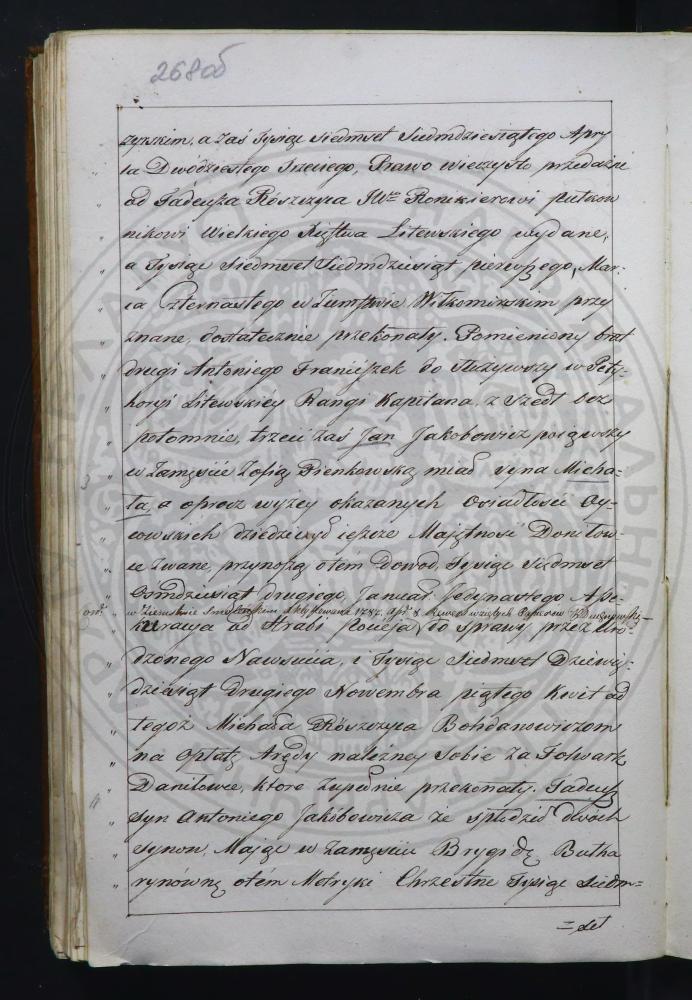 268 об
żyrskim, a zaś Tysiąc siedmset Siedmdziesiątego Apry
la Dwódziestego Trzeciego, Prawo wieczysto przedażne
od Tadeusza Rószczyca JWu Ronikierowi pułkow
nikowi Wielkiego Xięztwa Litewskiego wydane,
a Tysiąc siedmset Siedmdziesiąt pierwszego, Mar-
ca Czternastego w Ziemstwie Wiłkomirskim przy
znane, dostatecznie przekonały. Pomieniony brat
drugi Antoniego Franciszek do służywszy w Pety-
horyi Litewskiey Rangi Kapitana, z szedł bez
potomnie, trzeci zaś Jan Jakobowicz poiąwszy
w Zamęście Zofią Pienkowską miał syna Micha-
ła, a oprocz wyżey okazanych Osiadłości Oy-
cowskich dziedziczył ieszcze Maiętność Daniłow-
ce zwane, przynoszą otém Dowod, Tysiąc siedmset
Osmdziesiąt drugiego, Januar. Jedynastego Asse-
w Ziemstwie 1787 Apr. 8
kuracya od Hrabi do sprawy przez Uro-
dzonego Nawsucia, i Tysiąc Siedmset Dziewię-
dziesiąt drugiego Nowembra piątego Kwit od
tegoż Michała Rószczyca Bohdanowiczom
na opłatę Arędy należney sobie za Folwark
Daniłowce, które zupełnie przekonały. Tadeusz
syn Antoniego Jakóbowicza że spłodził dwóch
synow, Maiąc w Zamęściu Brygidę Butka
rynównę, otém Metryki Chrzestne Tysiąc Siedm=
=set